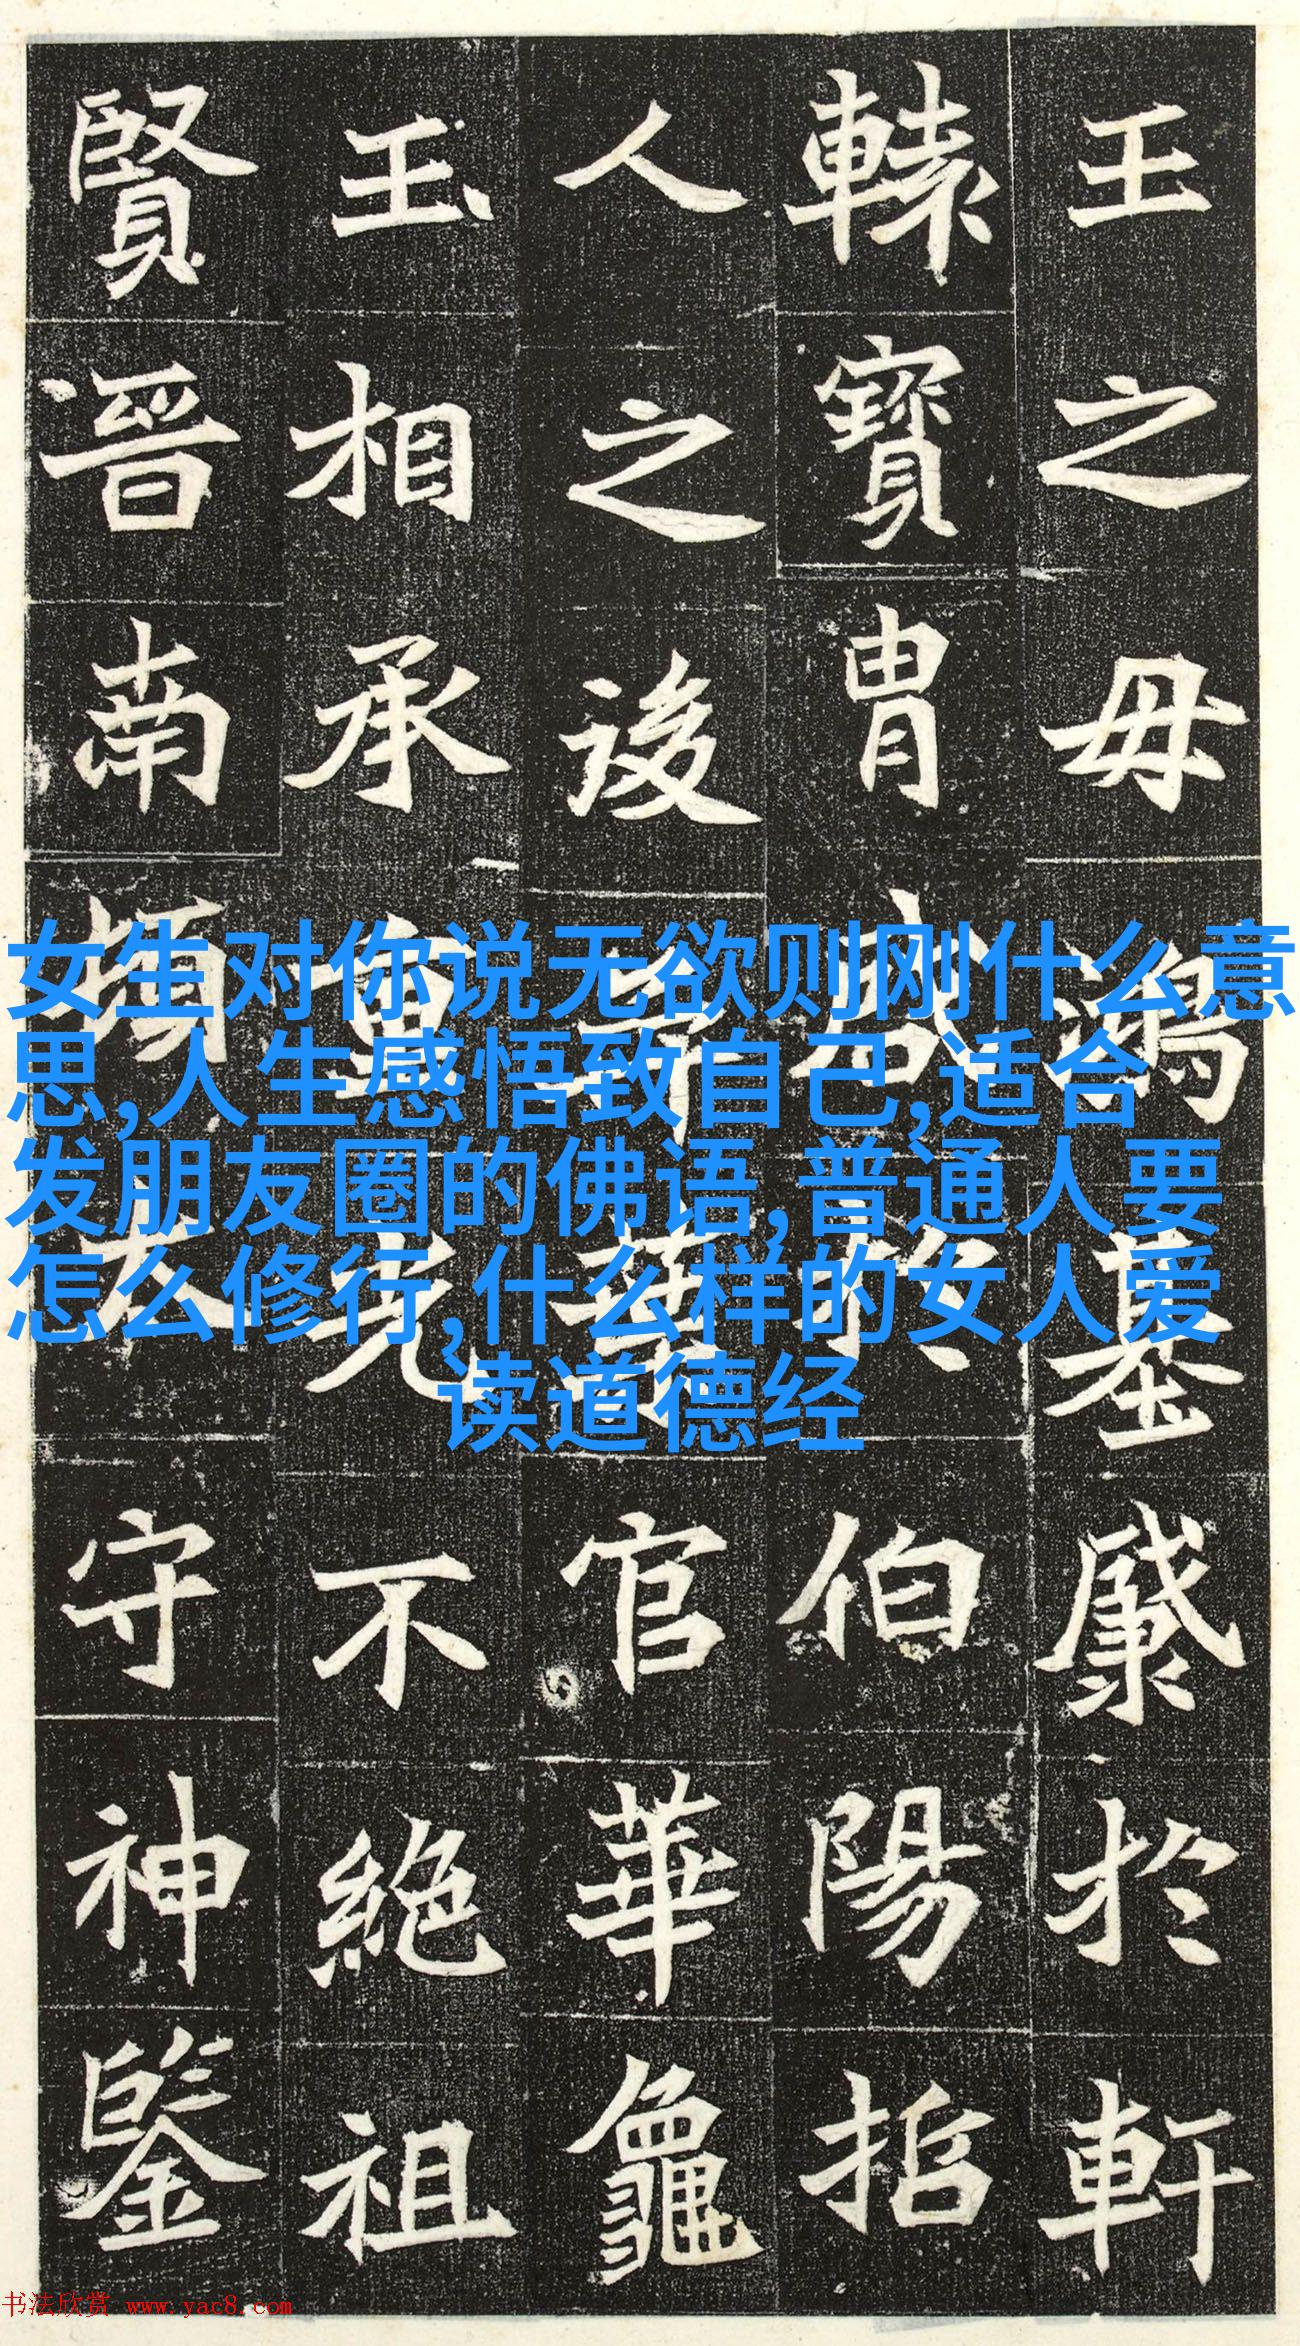 王之毋鴻基於軒
轅寶胄於伯陽
人之後官華龕
玉相承重光不絕祖
賢晉南頓太守神鑒
女生对你说无欲则刚什么意
思,人生感悟致自己,适合
发朋友圈的佛语,普通人要
怎么修行,什么样的女人爱
读道德经
书法欣赏 www.yac8.com